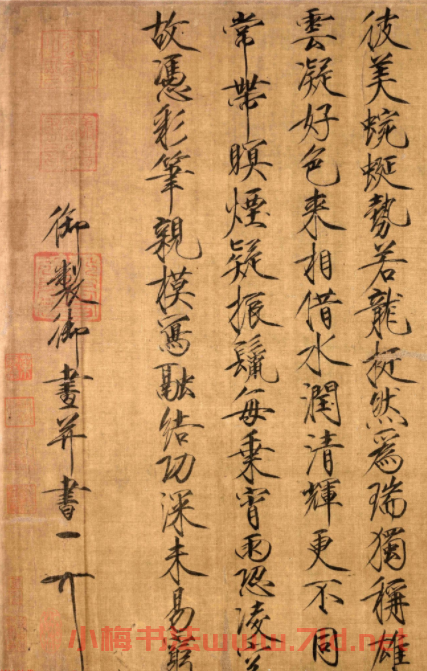 彼美蜿蜒勢若龍挺然爲瑞獨稱雄
雲凝好色來相借水潤清輝更不同
常帶暝煙疑振鬣每乘宵雨恐凌空
故憑彩筆親模寫融結功深未易窮
御製御畫并書
小梅书法